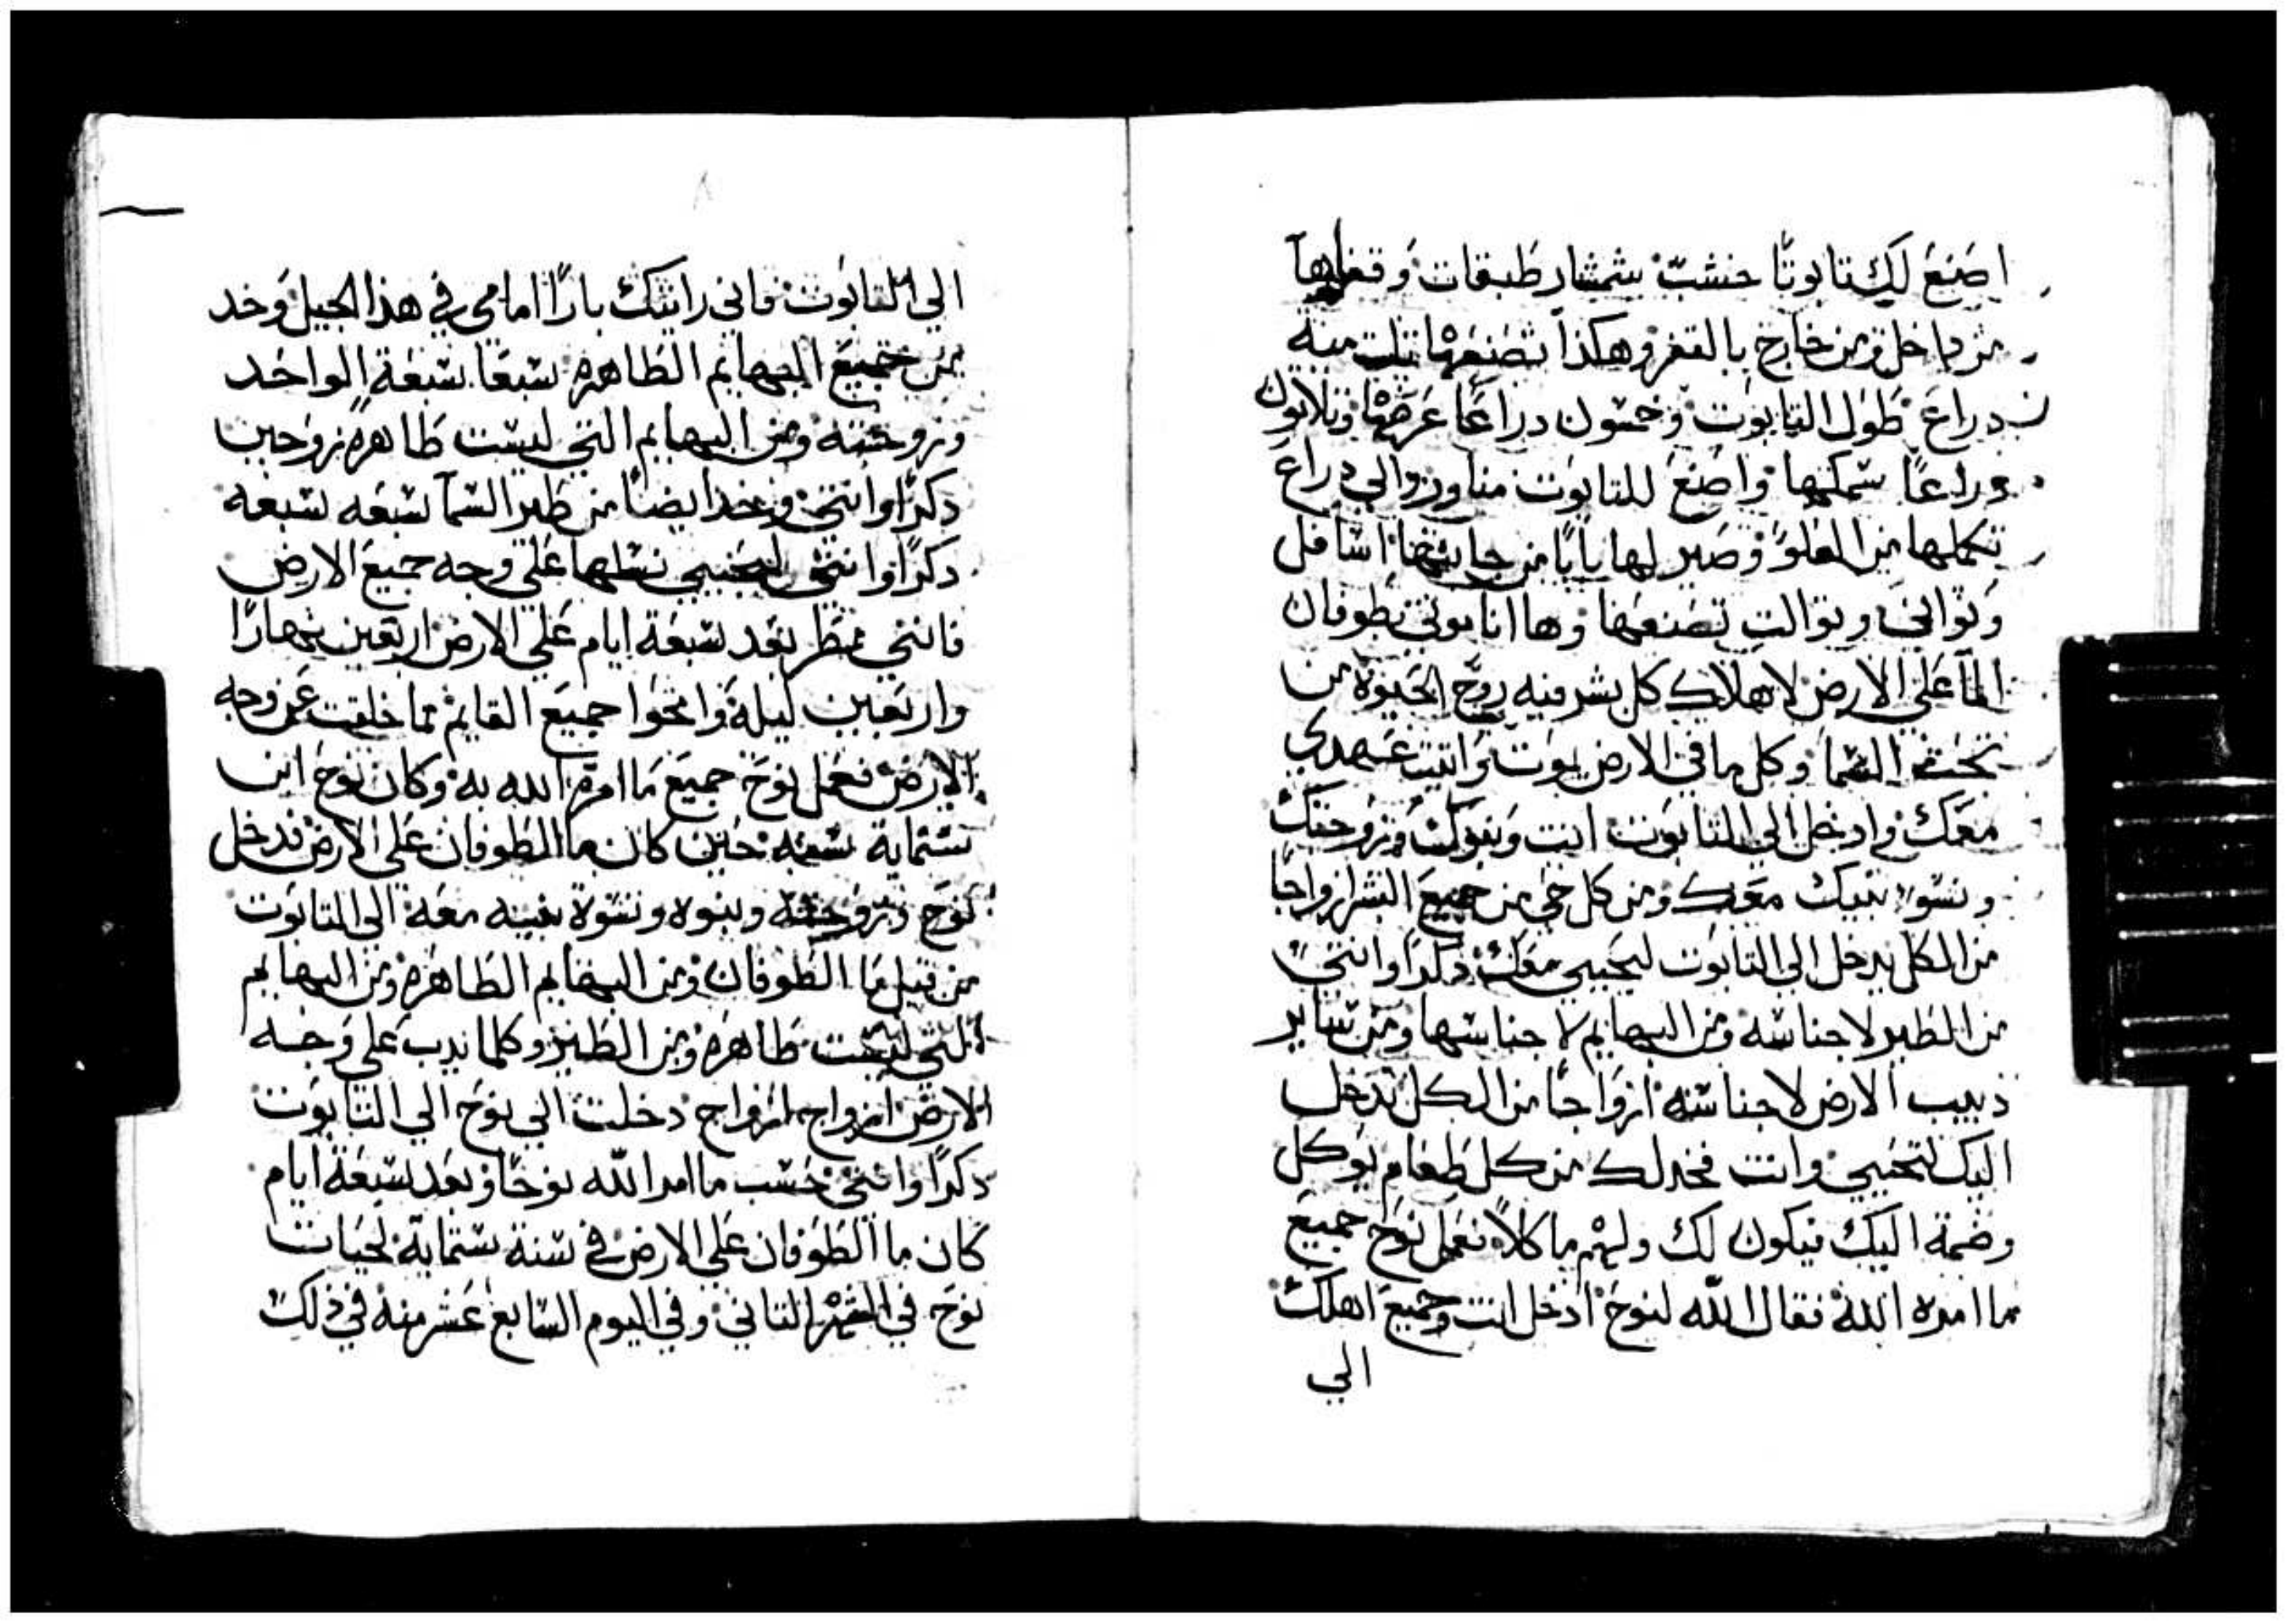 اصنع لك تابوتا خشب بشمشار طبقات وقفلها
من داخل ومن خارج بالقفر وهكذا تصنعها تلت مية
دراع طول التابوت وخمسون دراعا عرضها وتلاتون
دراعا سمكها واصنع للتابوت مناور والي دراع
تكملها من العلو وصير لها بابا من جانبها اسافل
وتواني وتوالت تصنعها وها انا موتي بطوفان
الما علي الارض لاهلاك كل بشر فيه روح الحيوة من
تحت السما وكل ما في الارض يموت واتبت عهدي
معك وادخل الي التابوت انت وبنوك وزوجتك
ونسوة بنيك معك ومن كل حي من جميع البشر ازواجا
من الكل يدخل الي التابوت ليحيي معك دكرا وانتي
من الطير لاجناسه ومن البهايم لاجناسها ومن ساير
دبيب الارض لاجناسه ازواجا من الكل تدخل
اليك لتحيي وانت فخد لك من كل طعام يوكل
وضمة اليك فيكون لك ولهم ماكلا فعمل نوح جميع
ما امره الله فقال الله لنوح ادخل انت وجميع اهلك
الي
٨
الي التابوت فاني رايتك بارا امامي في هذا الجيل وخد
من جميع البهايم الطاهره سبعا سبعة الواحد
وزوجته ومن البهايم التي ليست طاهره زوجين
دكرا وانتي وخد ايضا من طير السما سبعه سبعه
دكرا وانتي ليحيي نسلها علي وجه جميع الارض
فانني ممطر بعد سبعة ايام علي الارض اربعين نهارا
واربعين ليلة وامحوا جميع القايم مما خلقت عن وجه
الارض فعمل نوح جميع ما امره الله به وكان نوح ابن
ستماية سنه حين كان ما الطوفان علي الارض فدخل
نوح وزوجته وبنوه ونسوة بنيه معه الي التابوت
من قبل ما الطوفان ومن البهايم الطاهره ومن البهايم
التي ليست طاهره ومن الطير وكلما يدب علي وجه
الارض ازواج ازواج دخلت الي نوح الي التابوت
دكرا وانتي حسب ما امر الله نوحا وبعد سبعة ايام
كان ما الطوفان علي الارض في سنة ستماية لحيات
نوح في الشهر التاني وفي اليوم السابع عشر منه في ذلك